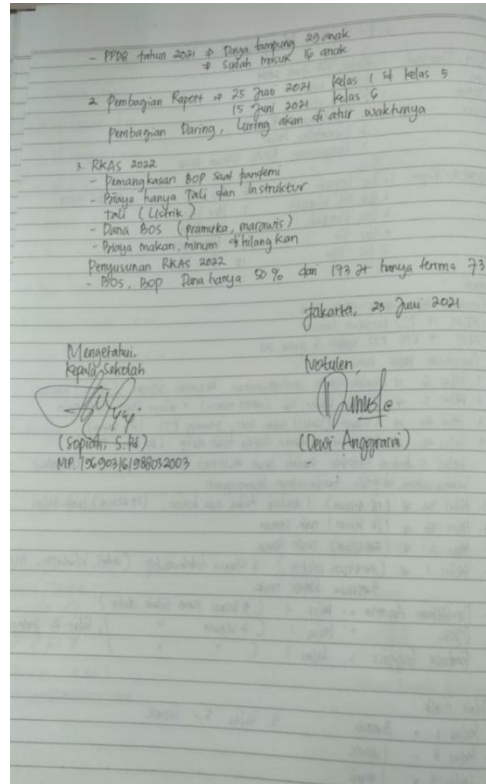 - PPDB tahun 2021 → Daya tampung 29 anak
→ Sudah masuk 16 anak
2. Pembagian Raport → 25 Juni 2021 Kelas 1 sd Kelas 5
15 Juni 2021 Kelas 6
Pembagian Daring, Luring akan di atur waktunya
RKAS 2022
- Pemangkasan BOP saat pandemi
- Biaya hanya Tali dan Instruktur
Tali (Listrik)
- Dana BOS (pramuka, marawis)
- Biaya makan, minum dihilangkan
Penyusunan RKAS 2022
- BOS, BOP Dana hanya 50 % dari 193 Jt hanya terima 73
Jakarta, 23 Juni 2021
Mengetahui,
Kepala Sekolah
Notulen,
(Sopiati, S.Pd)
(Dewi Anggraini)
NIP. 196903161988032003